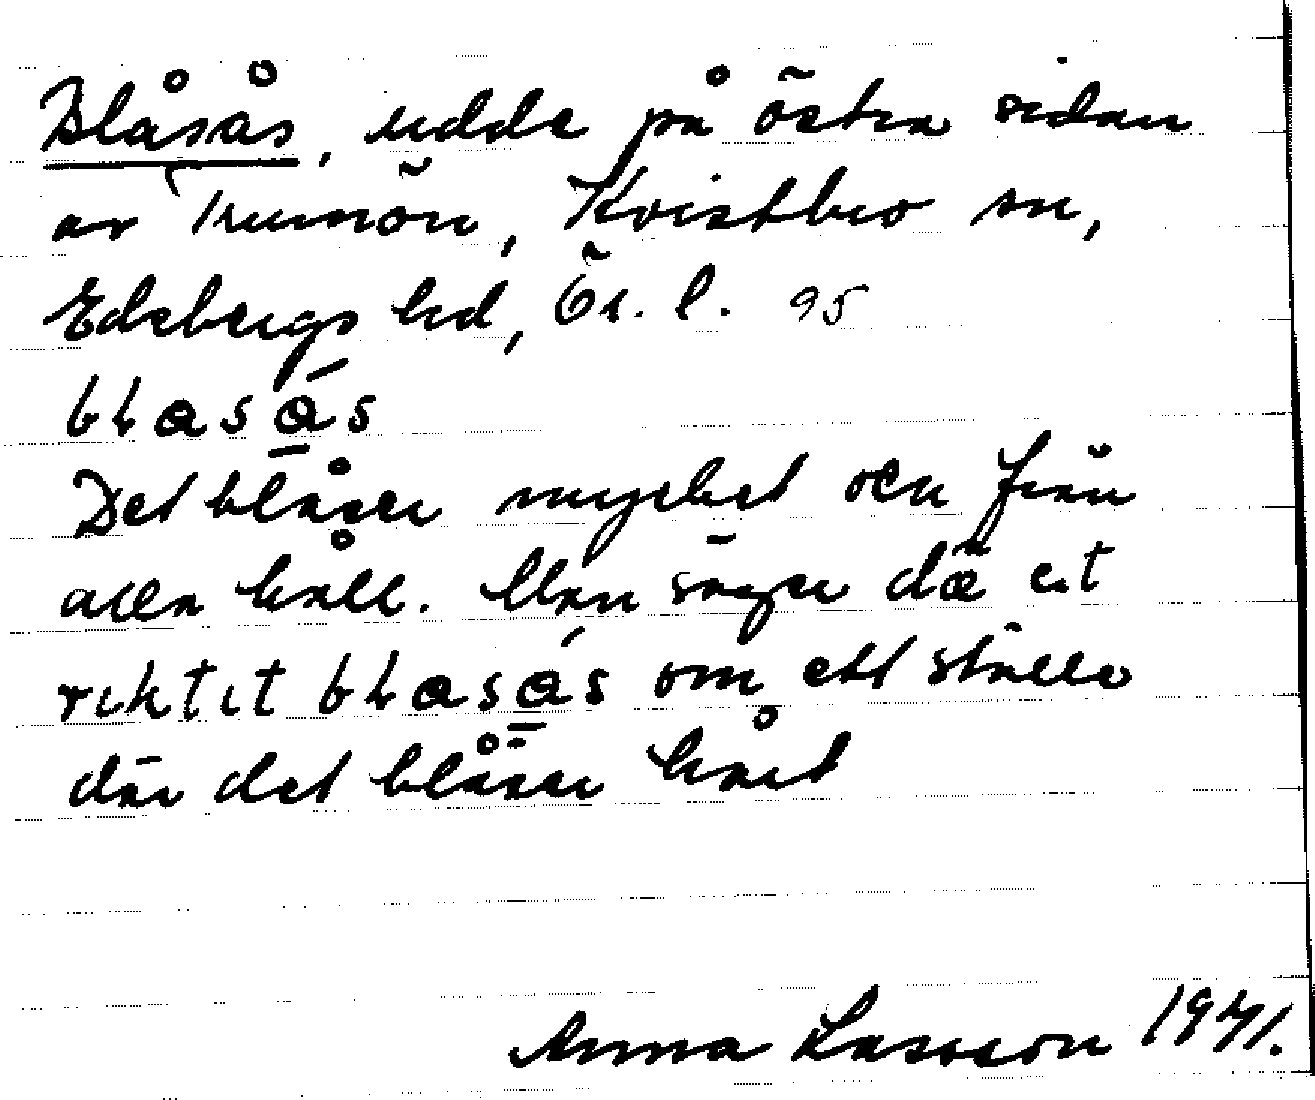 Blåsås, udde på östra sidan
av Trumön, Kvistbro sn,
Edsbergs hd, Ör. l. 95
blasás
Det blåser mycket der från
alla håll. Man säger dä e.t
riktit blasás om ett ställe
där det blåser hårt
Anna Larsson 1971.